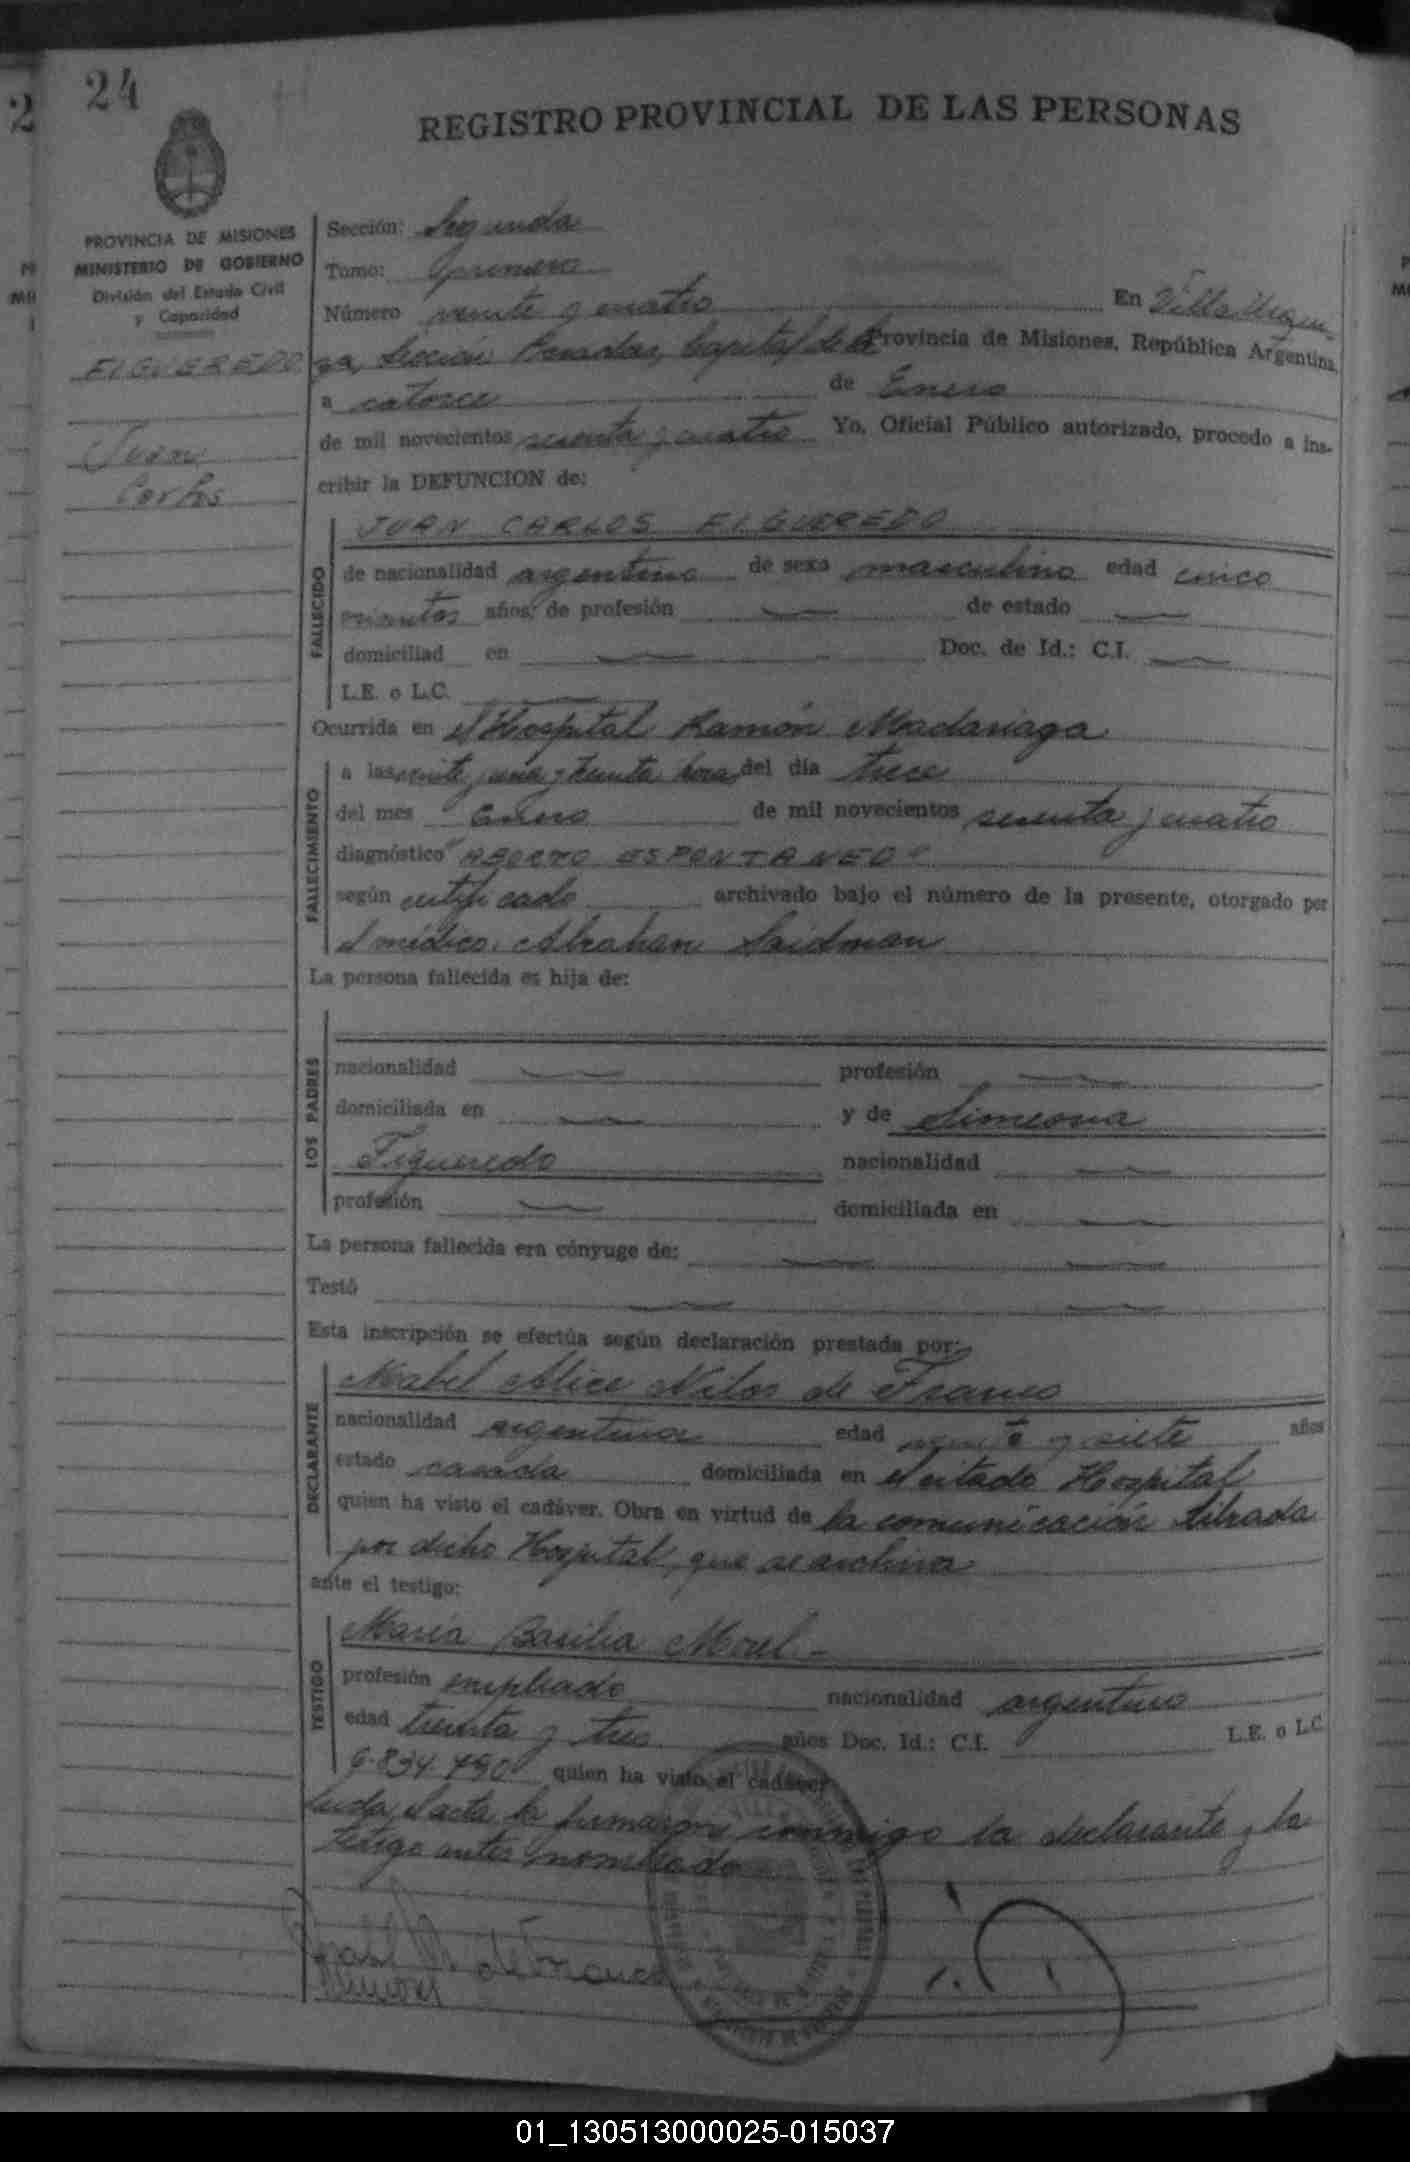 24
REGISTRO PROVINCIAL DE LAS PERSONAS
PROVINCIA DE MISIONES
MINISTERIO DE GOBIERNO
División del Estado Civil
y Capacidad
FIGUEREDO
Juan
Carlos
Sección: Segunda
Tomo: primero
Número veinte y cuatro En Villa Urqui-
za, Sección Posadas, Capital de la Provincia de Misiones, República Argentina,
a catorce de Enero
de mil novecientos sesenta y cuatro Yo, Oficial Público autorizado, procedo a ins-
cribir la DEFUNCION de:
FALLECIDO
JUAN CARLOS FIGUEREDO
de nacionalidad argentina de sexo masculino edad cinco
minutos años, de profesión de estado
domiciliad en Doc. de Id.: C.I.
L.E. o L.C.
Ocurrida en el Hospital Ramón Madariaga
FALLECIMIENTO
a las veinte y una y treinta horas del día trece
del mes Enero de mil novecientos sesenta y cuatro
diagnóstico "ABORTO ESPONTANEO"
según certificado archivado bajo el número de la presente, otorgado por
el médico: Abrahan Saidman
La persona fallecida es hija de:
LOS PADRES
nacionalidad profesión
domiciliada en y de Simeona
Figueredo nacionalidad
profesión domiciliada en
La persona fallecida era cónyuge de:
Testó
Esta inscripción se efectúa según declaración prestada por:
DECLARANTE
Mabel Alice Niños de Franco
nacionalidad argentina edad veinte y siete años
estado casada domiciliada en el citado Hospital
quien ha visto el cadáver. Obra en virtud de la comunicación librada
por dicho Hospital, que se archiva
ante el testigo:
TESTIGO
María Basilia Morel.-
profesión empleado nacionalidad argentino
edad treinta y tres años Doc. Id.: C.I. L.E. o L.C.
6.834.790 quien ha visto el cadáver
Leída el acta la firmaron conmigo la declarante y la
testigo antes nombrado
de Franco
01_130513000025-015037